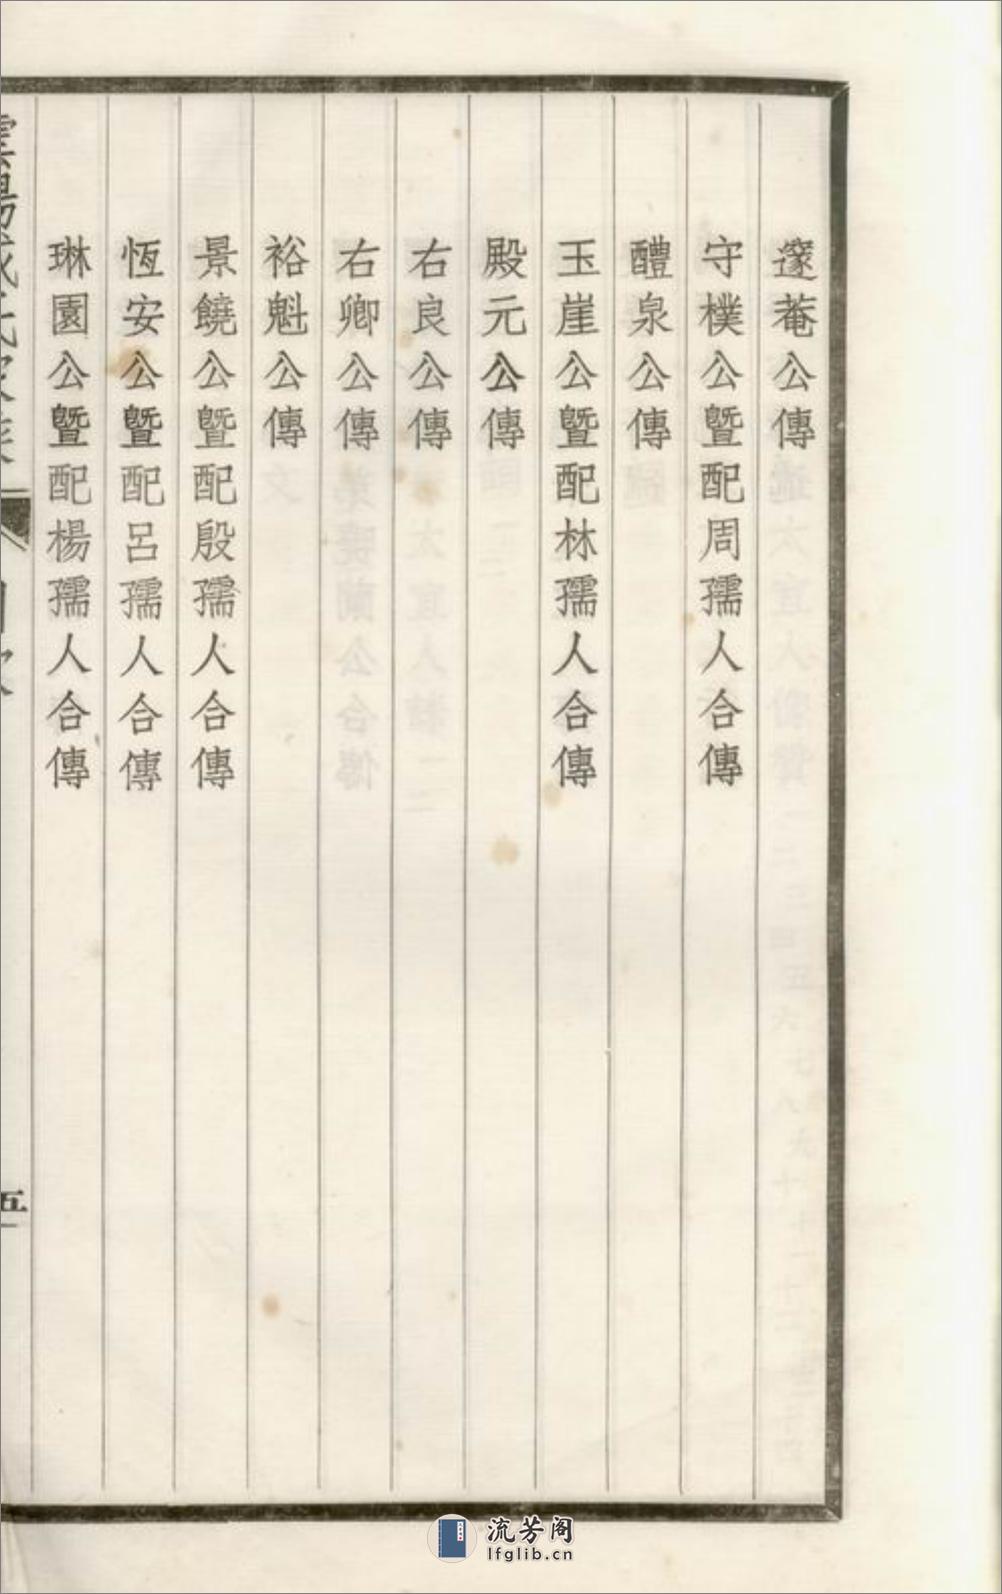 邃菴公傳
守樸公暨配周孺人合傳
醴泉公傳
玉崖公暨配林孺人合傳
殿元公傳
右良公傳
右卿公傳
裕魁公傳
景饒公暨配殷孺人合傳
恆安公暨配呂孺人合傳
琳園公暨配楊孺人合傳
五
流芳阁
lfglib.cn